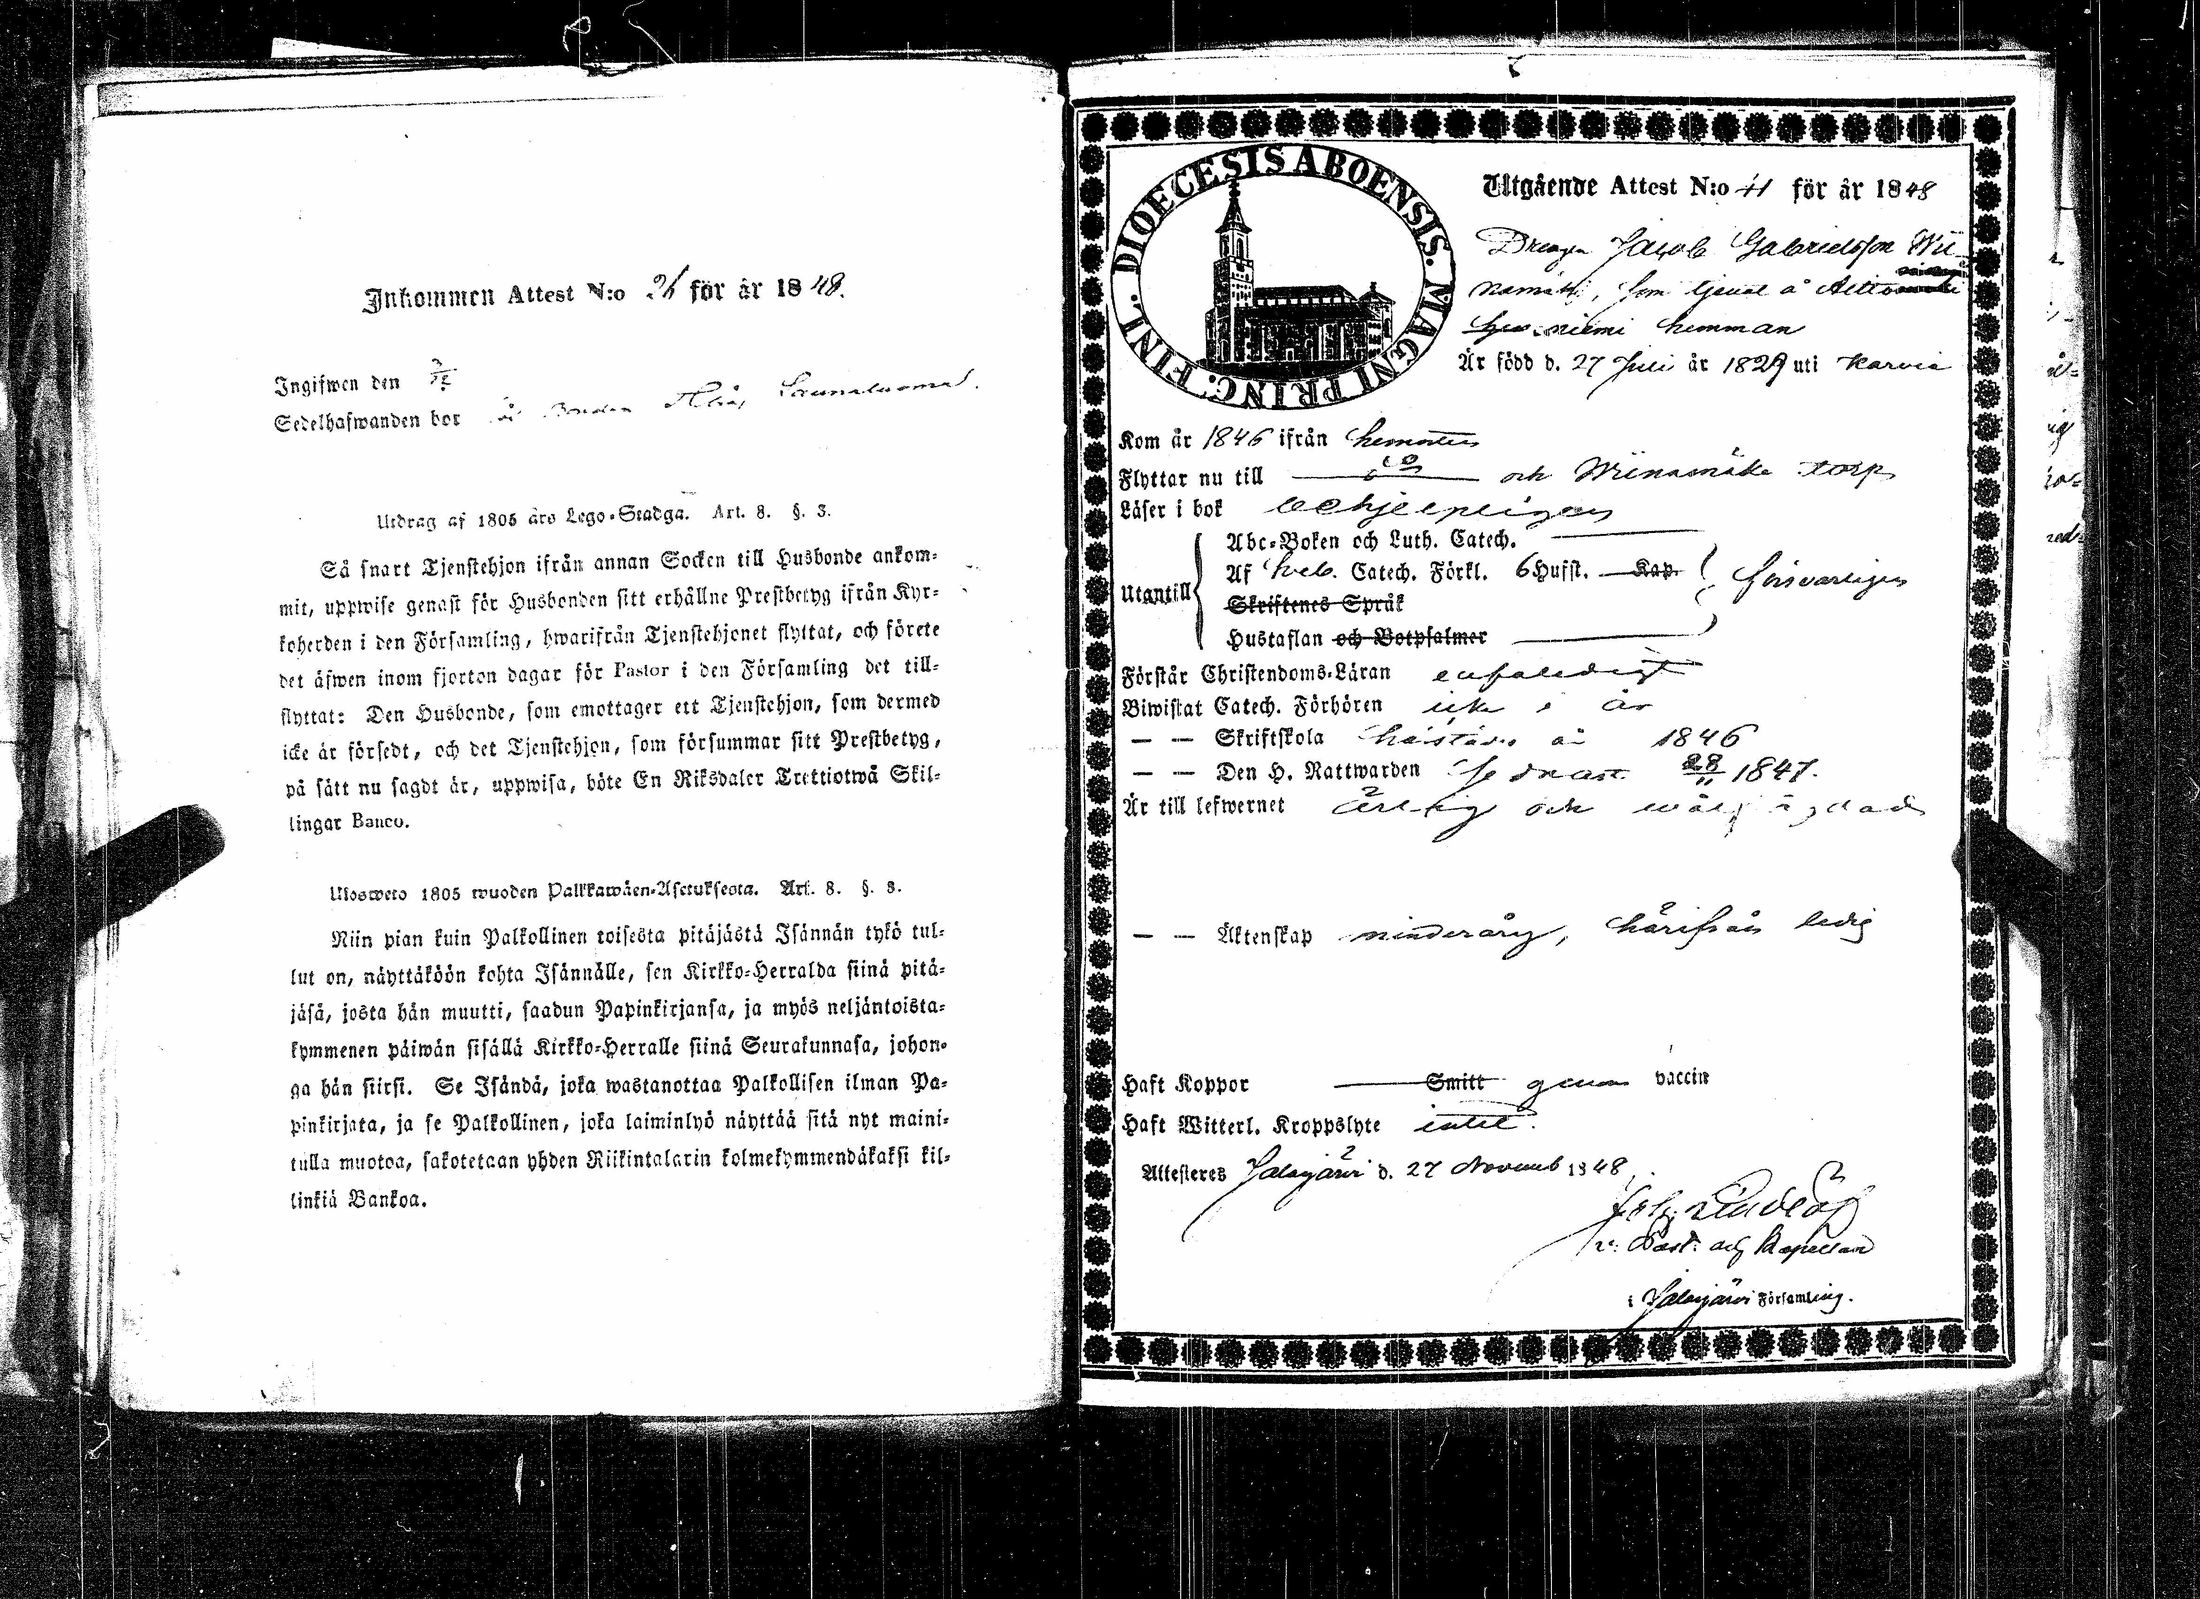 Inkommen Attest N:o 26 för år 1848.
Ingifwen den 3/12
Sedelhafwanden bor
Utdrag af 1805 års Lego-Stadga. Art. 8. §. 3.
Så snart Tjenstehjon ifrån annan Socken till Husbonde ankom-
mit, uppwise genast för Husbonden sitt erhållne Prestbetyg ifrån Kyr-
koherden i den Församling, hwarifrån Tjenstehjonet flyttat, och förete
det äfwen inom fjorton dagar för Pastor i den Församling det till-
flyttat: Den Husbonde, som emottager ett Tjenstehjon, som dermed
icke är försedt, och det Tjenstehjon, som försummar sitt Prestbetyg,
på sätt nu sagdt är, uppwisa, böte En Riksdaler Trettiotwå Skil-
lingar Banco.
Ulosweto 1805 wuoden Palkkawäen-Asetuksesta. Art. 8. §. 3.
Niin pian kuin Palkollinen toisesta pitäjästä Isännän tykö tul-
lut on, näyttäköön kohta Isännälle, sen Kirkko-Herralda siinä pitä-
jäsä, josta hän muutti, saadun Papinkirjansa, ja myös neljäntoista-
kymmenen päiwän sisällä Kirkko-Herralle siinä Seurakunnasa, johon-
ga hän siirsi. Se Isändä, joka wastanottaa Palkollisen ilman Pa-
pinkirjata, ja se Palkollinen, joka laiminlyö näyttää sitä nyt maini-
tulla muotoa, sakotetaan yhden Riikintalarin kolmekymmendäkaksi kil-
linkiä Bankoa.
DIOECESIS ABOENSIS. MAGNI PRINC. FINL.
Utgående Attest N:o 41 för år 1848
Drengen Jacob Gabrielsson Wii-
namäki, som tjenat å
niemi hemman
Är född d. 27 Juli år 1829 uti Karvia
Kom år 1846 ifrån hemorten
Flyttar nu till do och Wiinamäki torp
Läser i bok behjelpligen
Abc-Boken och Luth. Catech.
Utantill
Af Sveb. Catech. Förkl. 6 Hufst. Kap.
Skriftenes Språk
försvarligen
Hustaflan och Botpsalmer
Förstår Christendoms-Läran enfaldigt
Biwistat Catech. Förhören icke i år
— — Skriftskola härstädes år 1846
— — Den H. Nattwarden sednast 28/11 1847.
Är till lefwernet ärlig och wälfrägdad
— — Äktenskap minderårig, härifrån ledig
Haft Koppor Smitt genom vaccin
Haft Witterl. Kroppslyte intet.
Attesteres Jalasjärvi d. 27 Novemb 1848
v. Past. och Kapellan
i Jalasjärvi Församling.